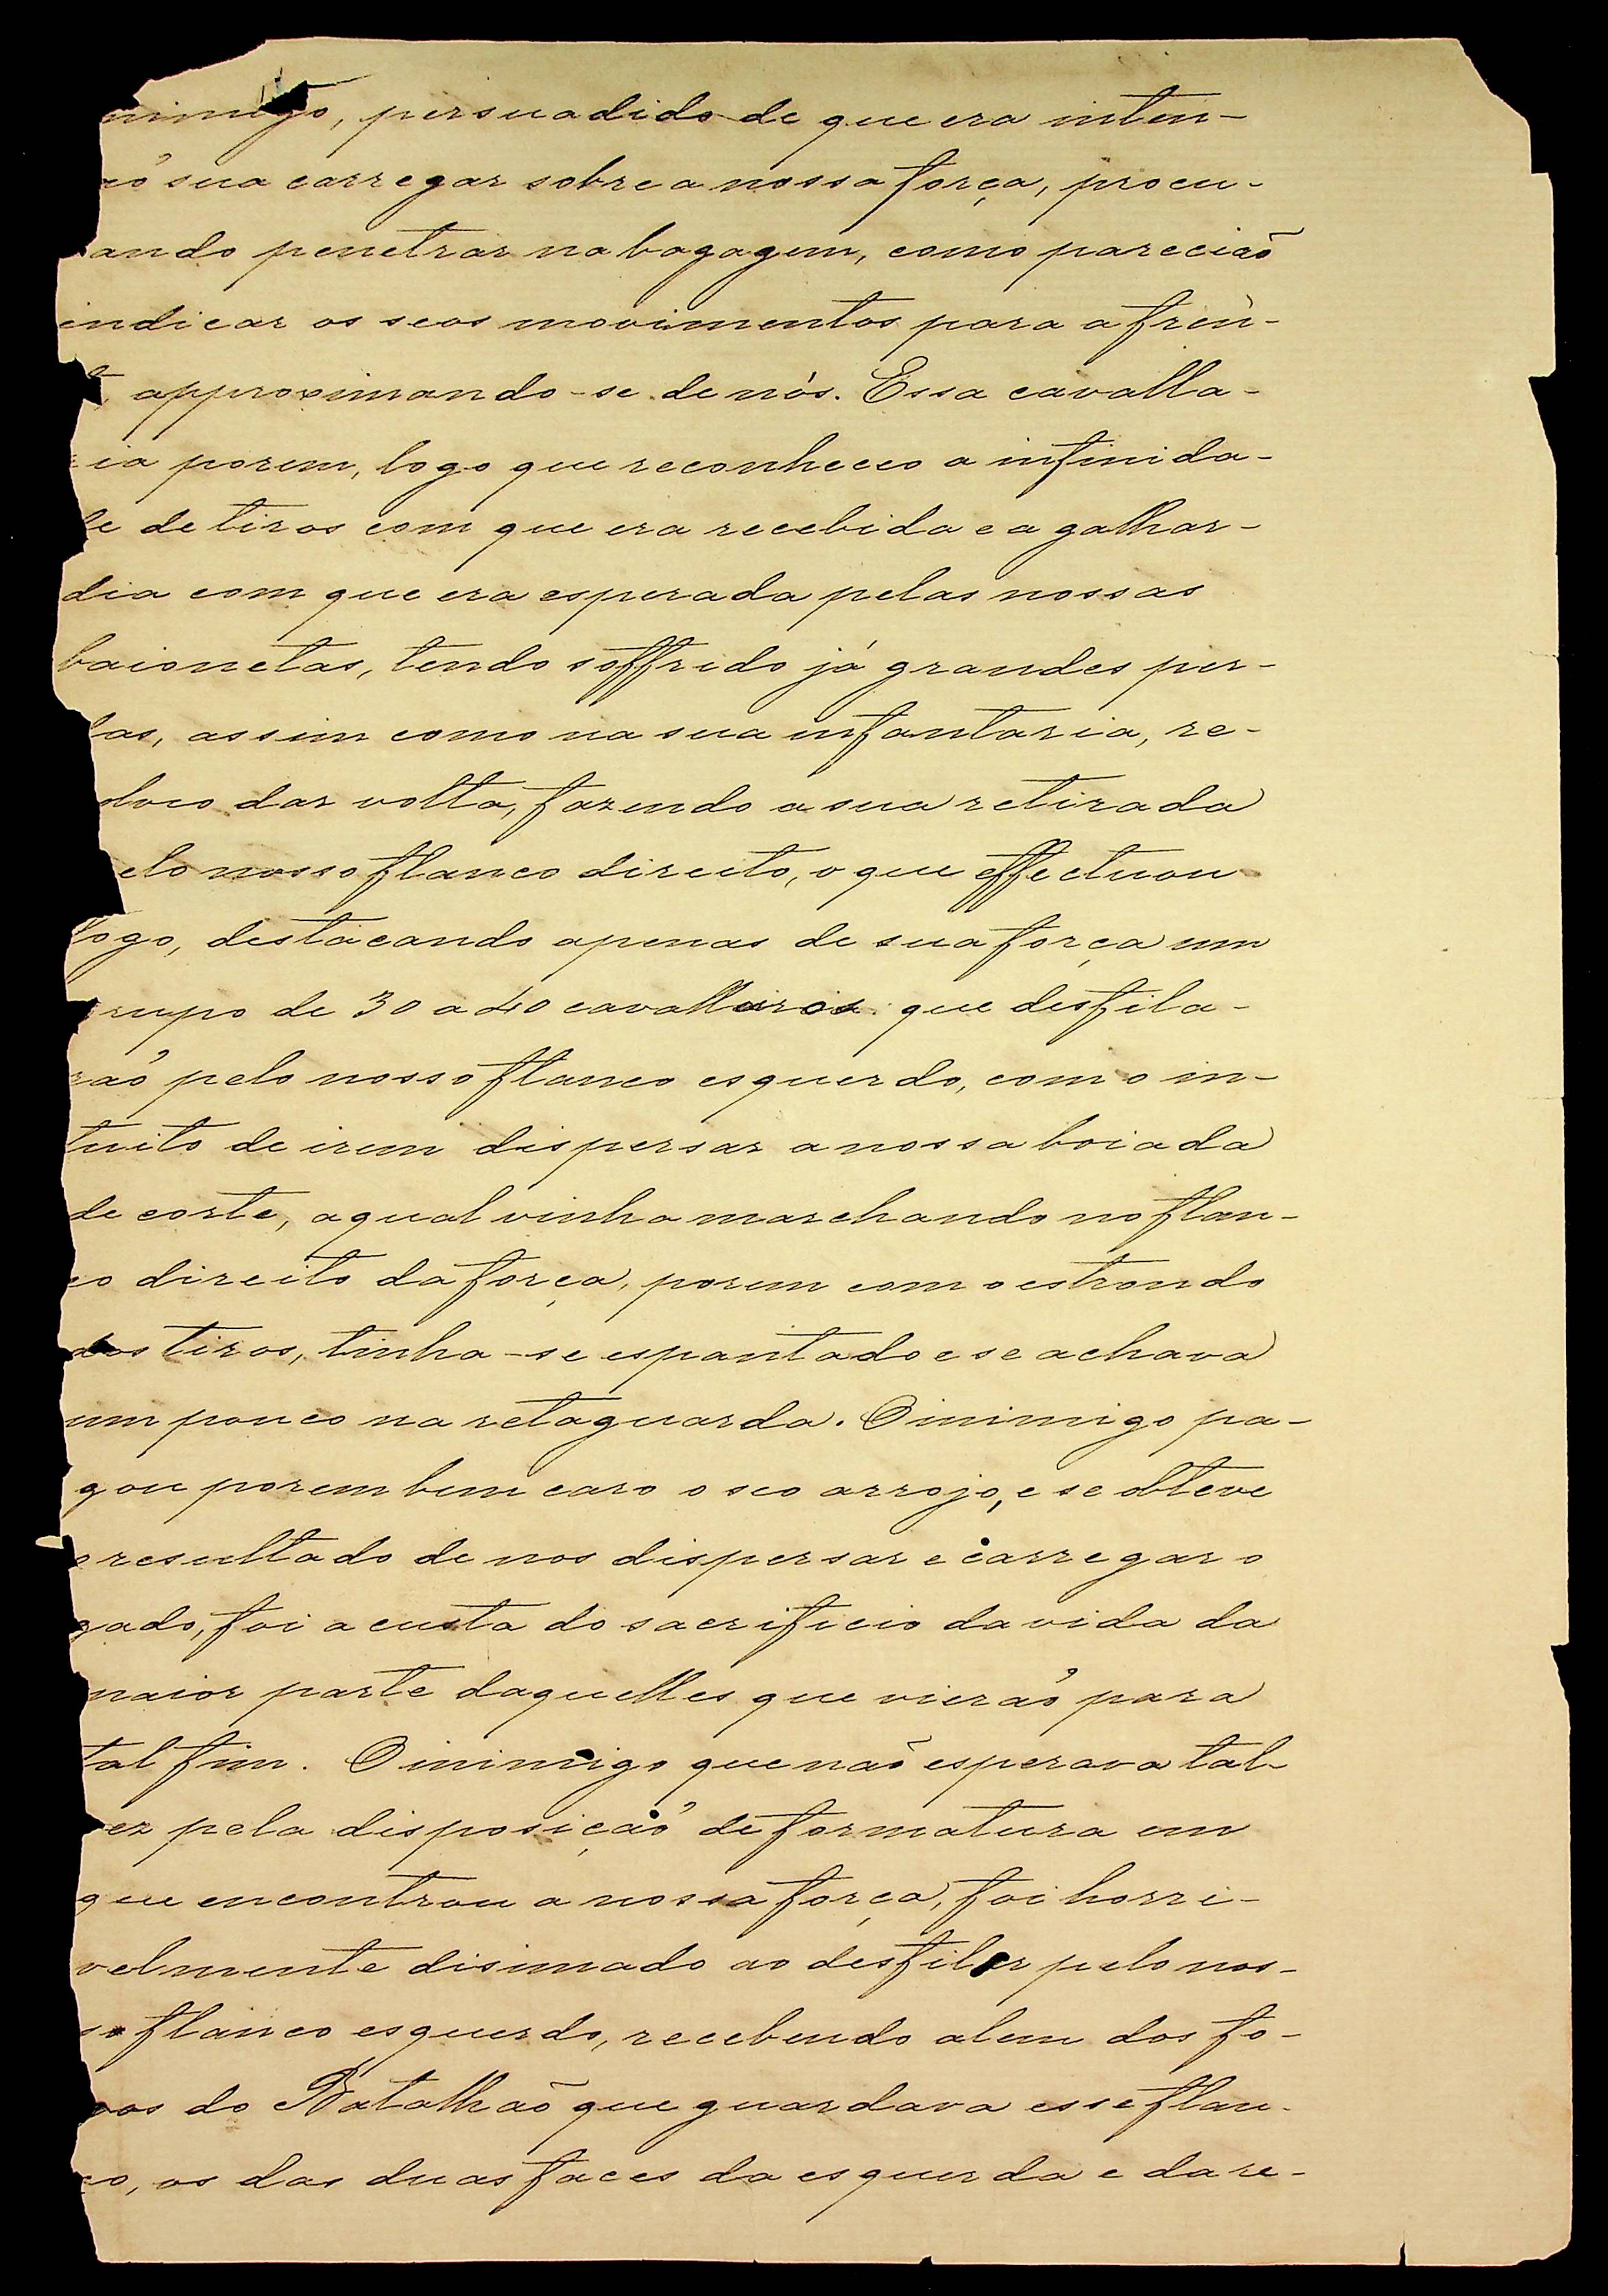 nimigo, persuadido de que era inten-
ão sua carregar sobre a nossa força, procu-
ando penetrar na bagagem, como pareciaõ
indicar os seos movimentos para a fren-
approximando-se de nós. Essa cavalla-
ia porem, logo que reconheceo a infinida-
de de tiros com que era recebida e a galhar-
dia com que era esperada pelas nossas
baionetas, tendo soffrido já grandes per-
das, assim como na sua infantaria, re-
olveo dar volta, fazendo a sua retirada
elo nosso flanco direito, o que effectuou
logo, destacando apenas de sua força um
grupo de 30 a 40 cavalleiros que desfila-
raõ pelo nosso flanco esquerdo, com o in-
tuito de irem dispersar a nossa boiada
de corte, a qual vinha marchando no flan-
co direito da força, porem com o estrondo
dos tiros, tinha-se espantado e se achava
um pouco na retaguarda. O inimigo pa-
gou porem bem caro o seo arrojo, e se obteve
o resultado de nos dispersar e carregar o
gado, foi a custa do sacrificio da vida da
maior parte daquelles que vieraõ para
tal fim. O inimigo que naõ esperava tal-
vez pela disposiçaõ de formatura em
que encontrou a nossa força, foi horri-
velmente disimado ao desfilar pelo nos-
so flanco esquerdo, recebendo alem dos fo-
gos do Batalhaõ que guardava esse flan-
co, os das duas faces da esquerda e da re-